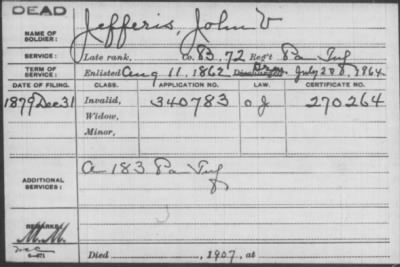 DEAD
NAME OF SOLDIER: Jefferis, John V
SERVICE: Late rank, Co. B. 72 Reg't Pa Inf
TERM OF SERVICE: Enlisted Aug 11, 1862 Discharged July 1864
DATE OF FILING. CLASS. APPLICATION NO. LAW. CERTIFICATE NO.
1879 Dec 31 Invalid, 340783 270264
Widow,
Minor,
ADDITIONAL SERVICES: 183 Pa Inf
REMARKS: M.M.
Died , 1907, at